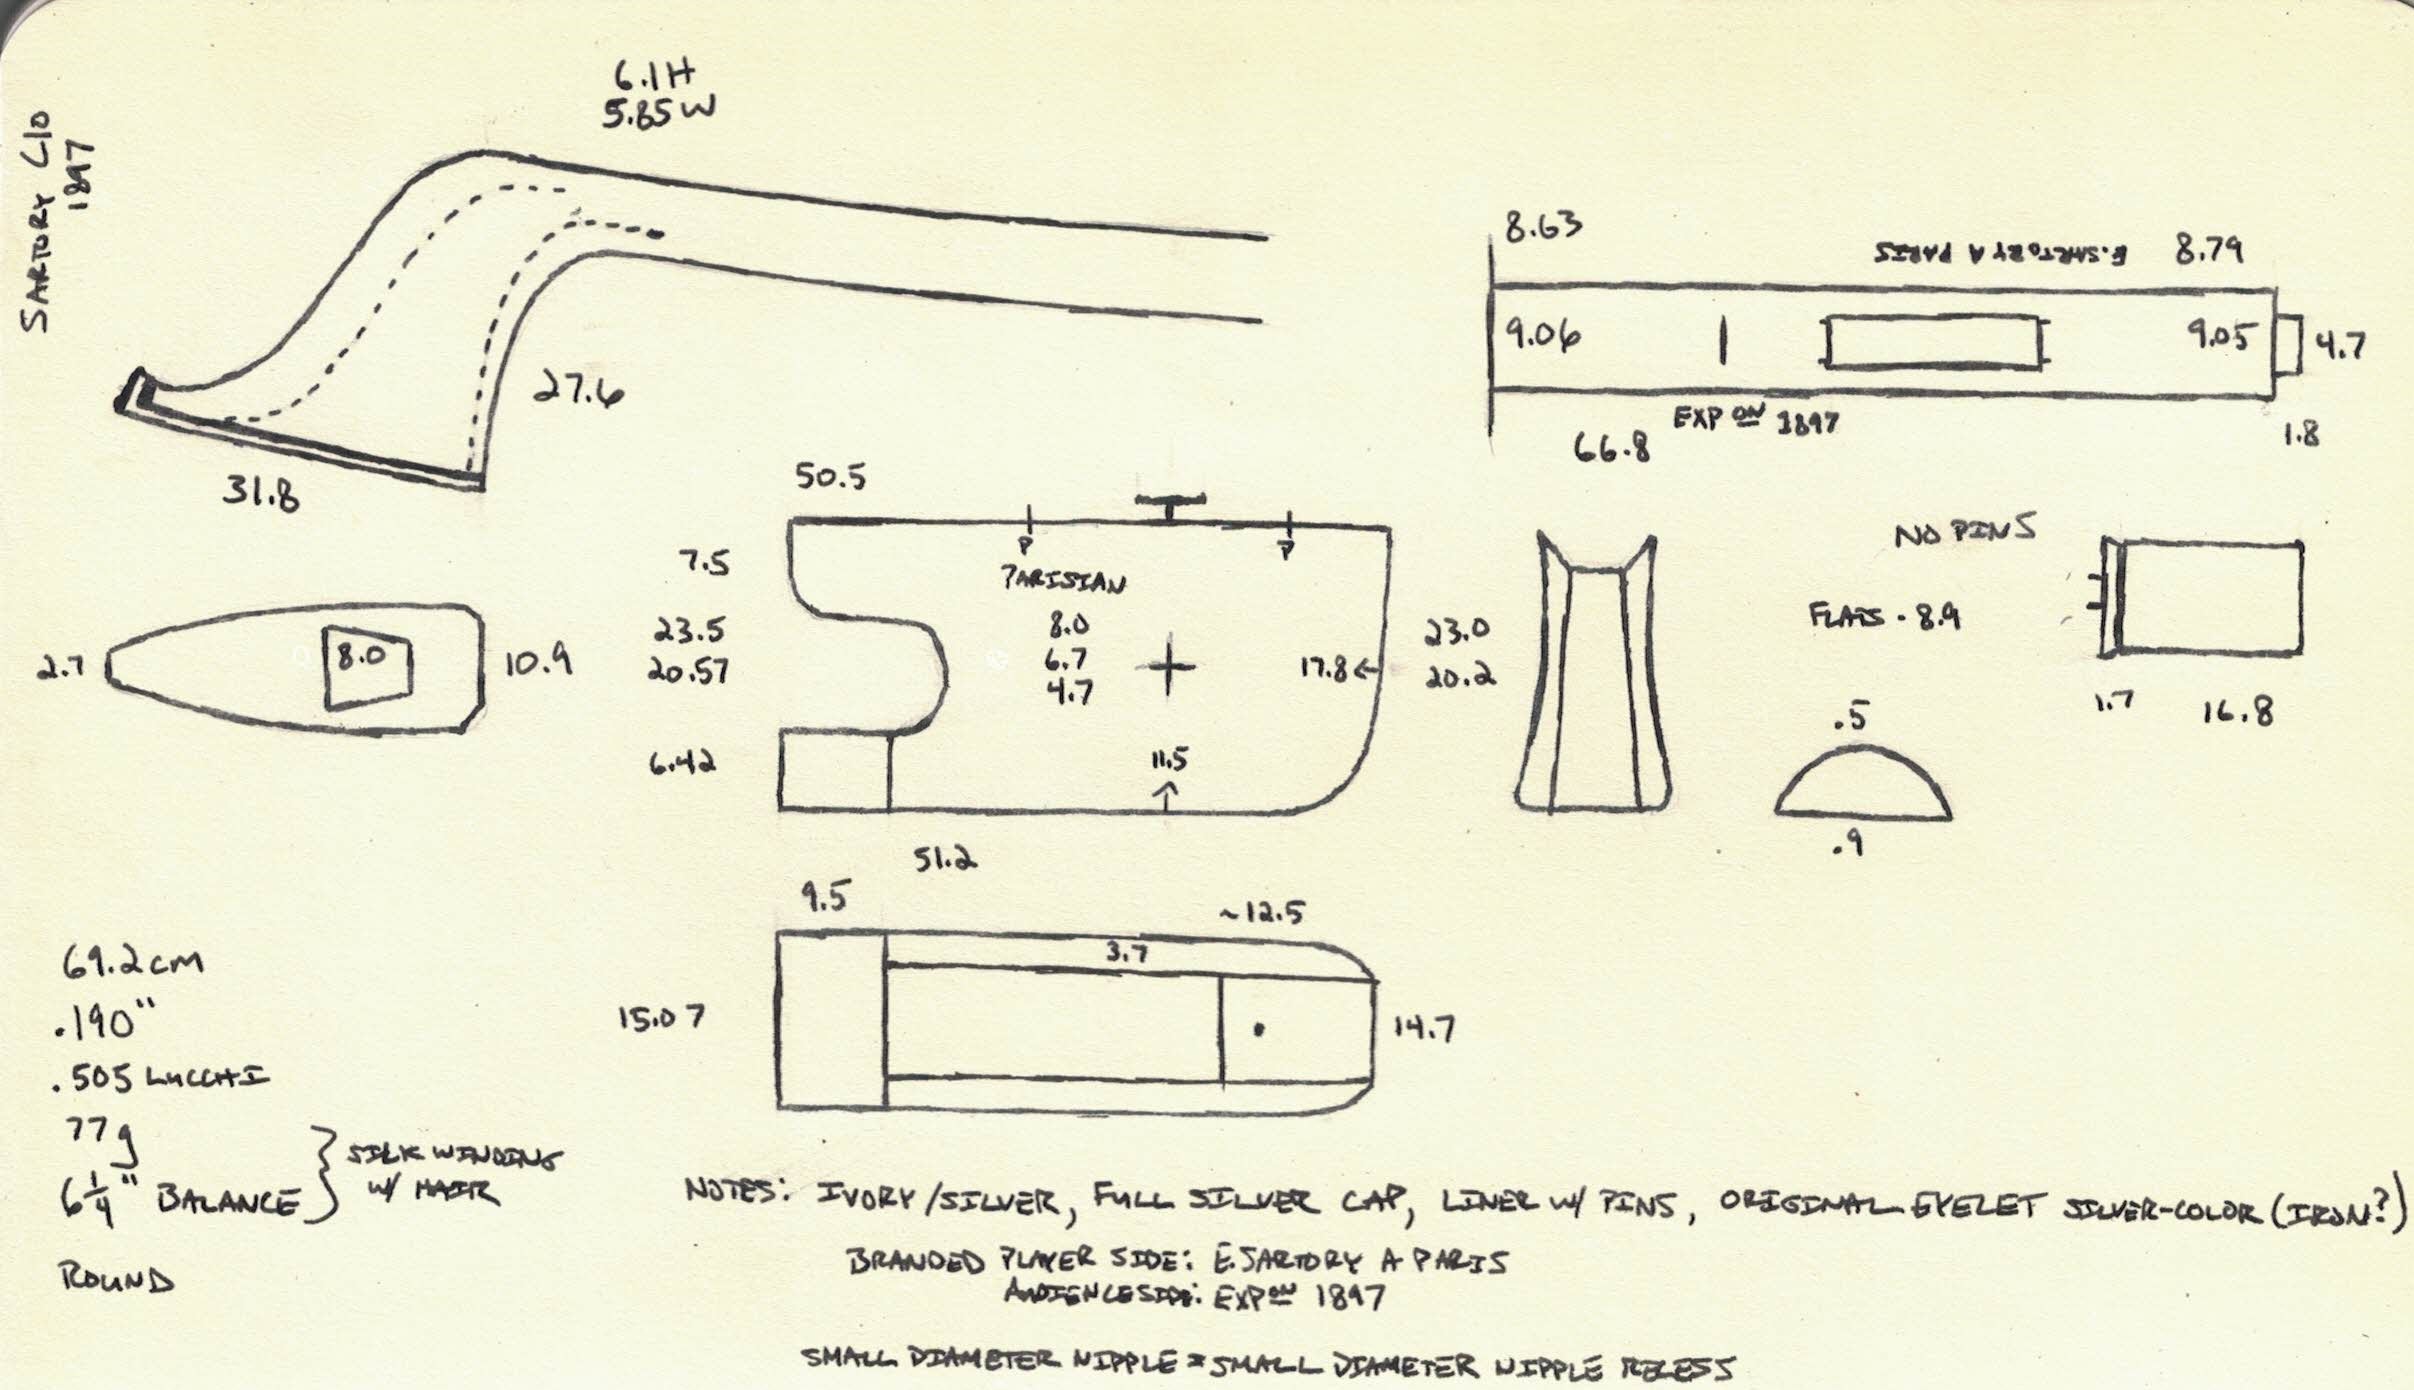 SARTORY C10
1897
6.1H
5.85W
27.6
31.8
8.63
E.SARTORY A PARIS
8.79
9.06
9.05
4.7
EXP ON 1897
66.8
1.8
2.7
8.0
10.9
50.5
7.5
P
P
PARISIAN
23.5
20.57
8.0
6.7
4.7
17.8
23.0
20.2
6.42
11.5
51.2
NO PINS
FLATS - 8.9
1.7
16.8
.5
.9
9.5
~12.5
3.7
15.07
14.7
69.2cm
.190"
.505 LUCCHI
77g
6 1/4" BALANCE
SILK WINDING
W/ HAIR
ROUND
NOTES: IVORY/SILVER, FULL SILVER CAP, LINER W/ PINS, ORIGINAL EYELET SILVER-COLOR (IRON?)
BRANDED PLAYER SIDE: E.SARTORY A PARIS
AUDIENCE SIDE: EXP ON 1897
SMALL DIAMETER NIPPLE = SMALL DIAMETER NIPPLE RECESS